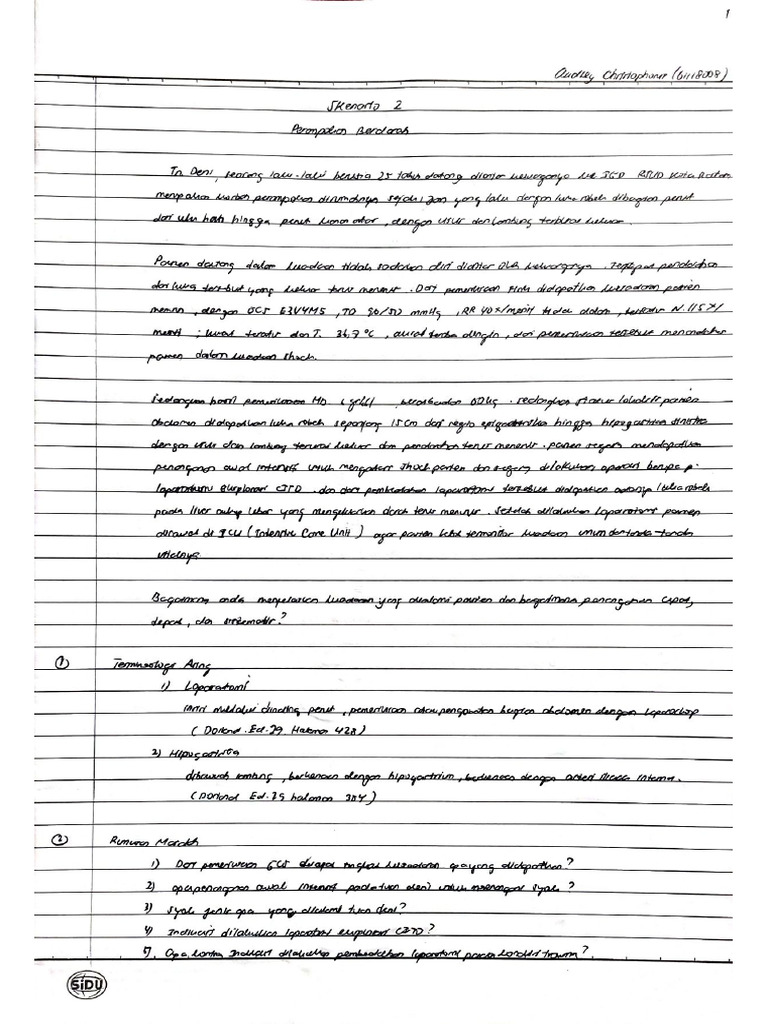 1
Audrey Christopher (61118008)
Skenario 2
Perampokan Berdarah
Tn. Deni, seorang laki-laki berusia 25 tahun datang diantar keluarganya ke IGD RSUD Kota Batam
merupakan korban perampokan dirumahnya sejak 1 jam yang lalu dengan luka robek dibagian perut
dari ulu hati hingga perut kanan atas, dengan usus dan lambung terburai keluar.
Pasien datang dalam keadaan tidak sadarkan diri diantar oleh keluarganya. Terdapat pendarahan
dari luka tersebut yang keluar terus menerus. Dari pemeriksaan fisik didapatkan kesadaran pasien
menurun, dengan GCS E3V4M5, TD 80/50 mmHg, RR 40x/menit tidak dalam, teratur N. 115x/
menit ; kuat teratur dan T. 36,7 °C, akral teraba dingin, dari pemeriksaan tersebut menandakan
pasien dalam keadaan shock.
Sedangkan hasil pemeriksaan Hb. sedangkan status lokalis pasien
abdomen didapatkan luka robek sepanjang 15cm dari regio epigastrika hingga hipogastrika sinistra
dengan usus dan lambung terurai keluar dan pendarahan terus menerus. pasien segera mendapatkan
penanganan awal intensif untuk mengatasi shock pasien dan segera dilakukan operasi berupa
laparatomi eksplorasi CITO. dan dari pembedahan laparatomi tersebut didapatkan adanya luka robek
pada liver cukup lebar yang mengeluarkan darah terus menerus. Setelah dilakukan laparatomi pasien
dirawat di ICU (Intensive Care Unit) agar pasien tetap termonitor keadaan umum dan tanda-tanda
vitalnya.
Bagaimana anda menjelaskan keadaan yang dialami pasien dan bagaimana penanganan cepat,
tepat, dan sistematis?
① Terminologi Asing
1) Laparatomi
insisi melalui dinding perut, pemeriksaan atau pengobatan bagian abdomen dengan laparoskop
(Dorland Ed. 29. Halaman 428)
2) Hipogastrika
dibawah lambung, berkenaan dengan hipogastrium, berkenaan dengan arteri iliaca interna.
(Dorland Ed. 29 halaman 384)
② Rumusan Masalah
1) Dari pemeriksaan GCS tingkat kesadaran apa yang didapatkan?
2) apa penanganan awal intensif pada tuan deni untuk menangani syok?
3) Syok jenis apa yang dialami tuan deni?
4) Indikasi dilakukan laparatomi eksplorasi CITO?
5. Apa kontra indikasi dilakukan pembedahan laparatomi pasien kondisi trauma?
SiDU